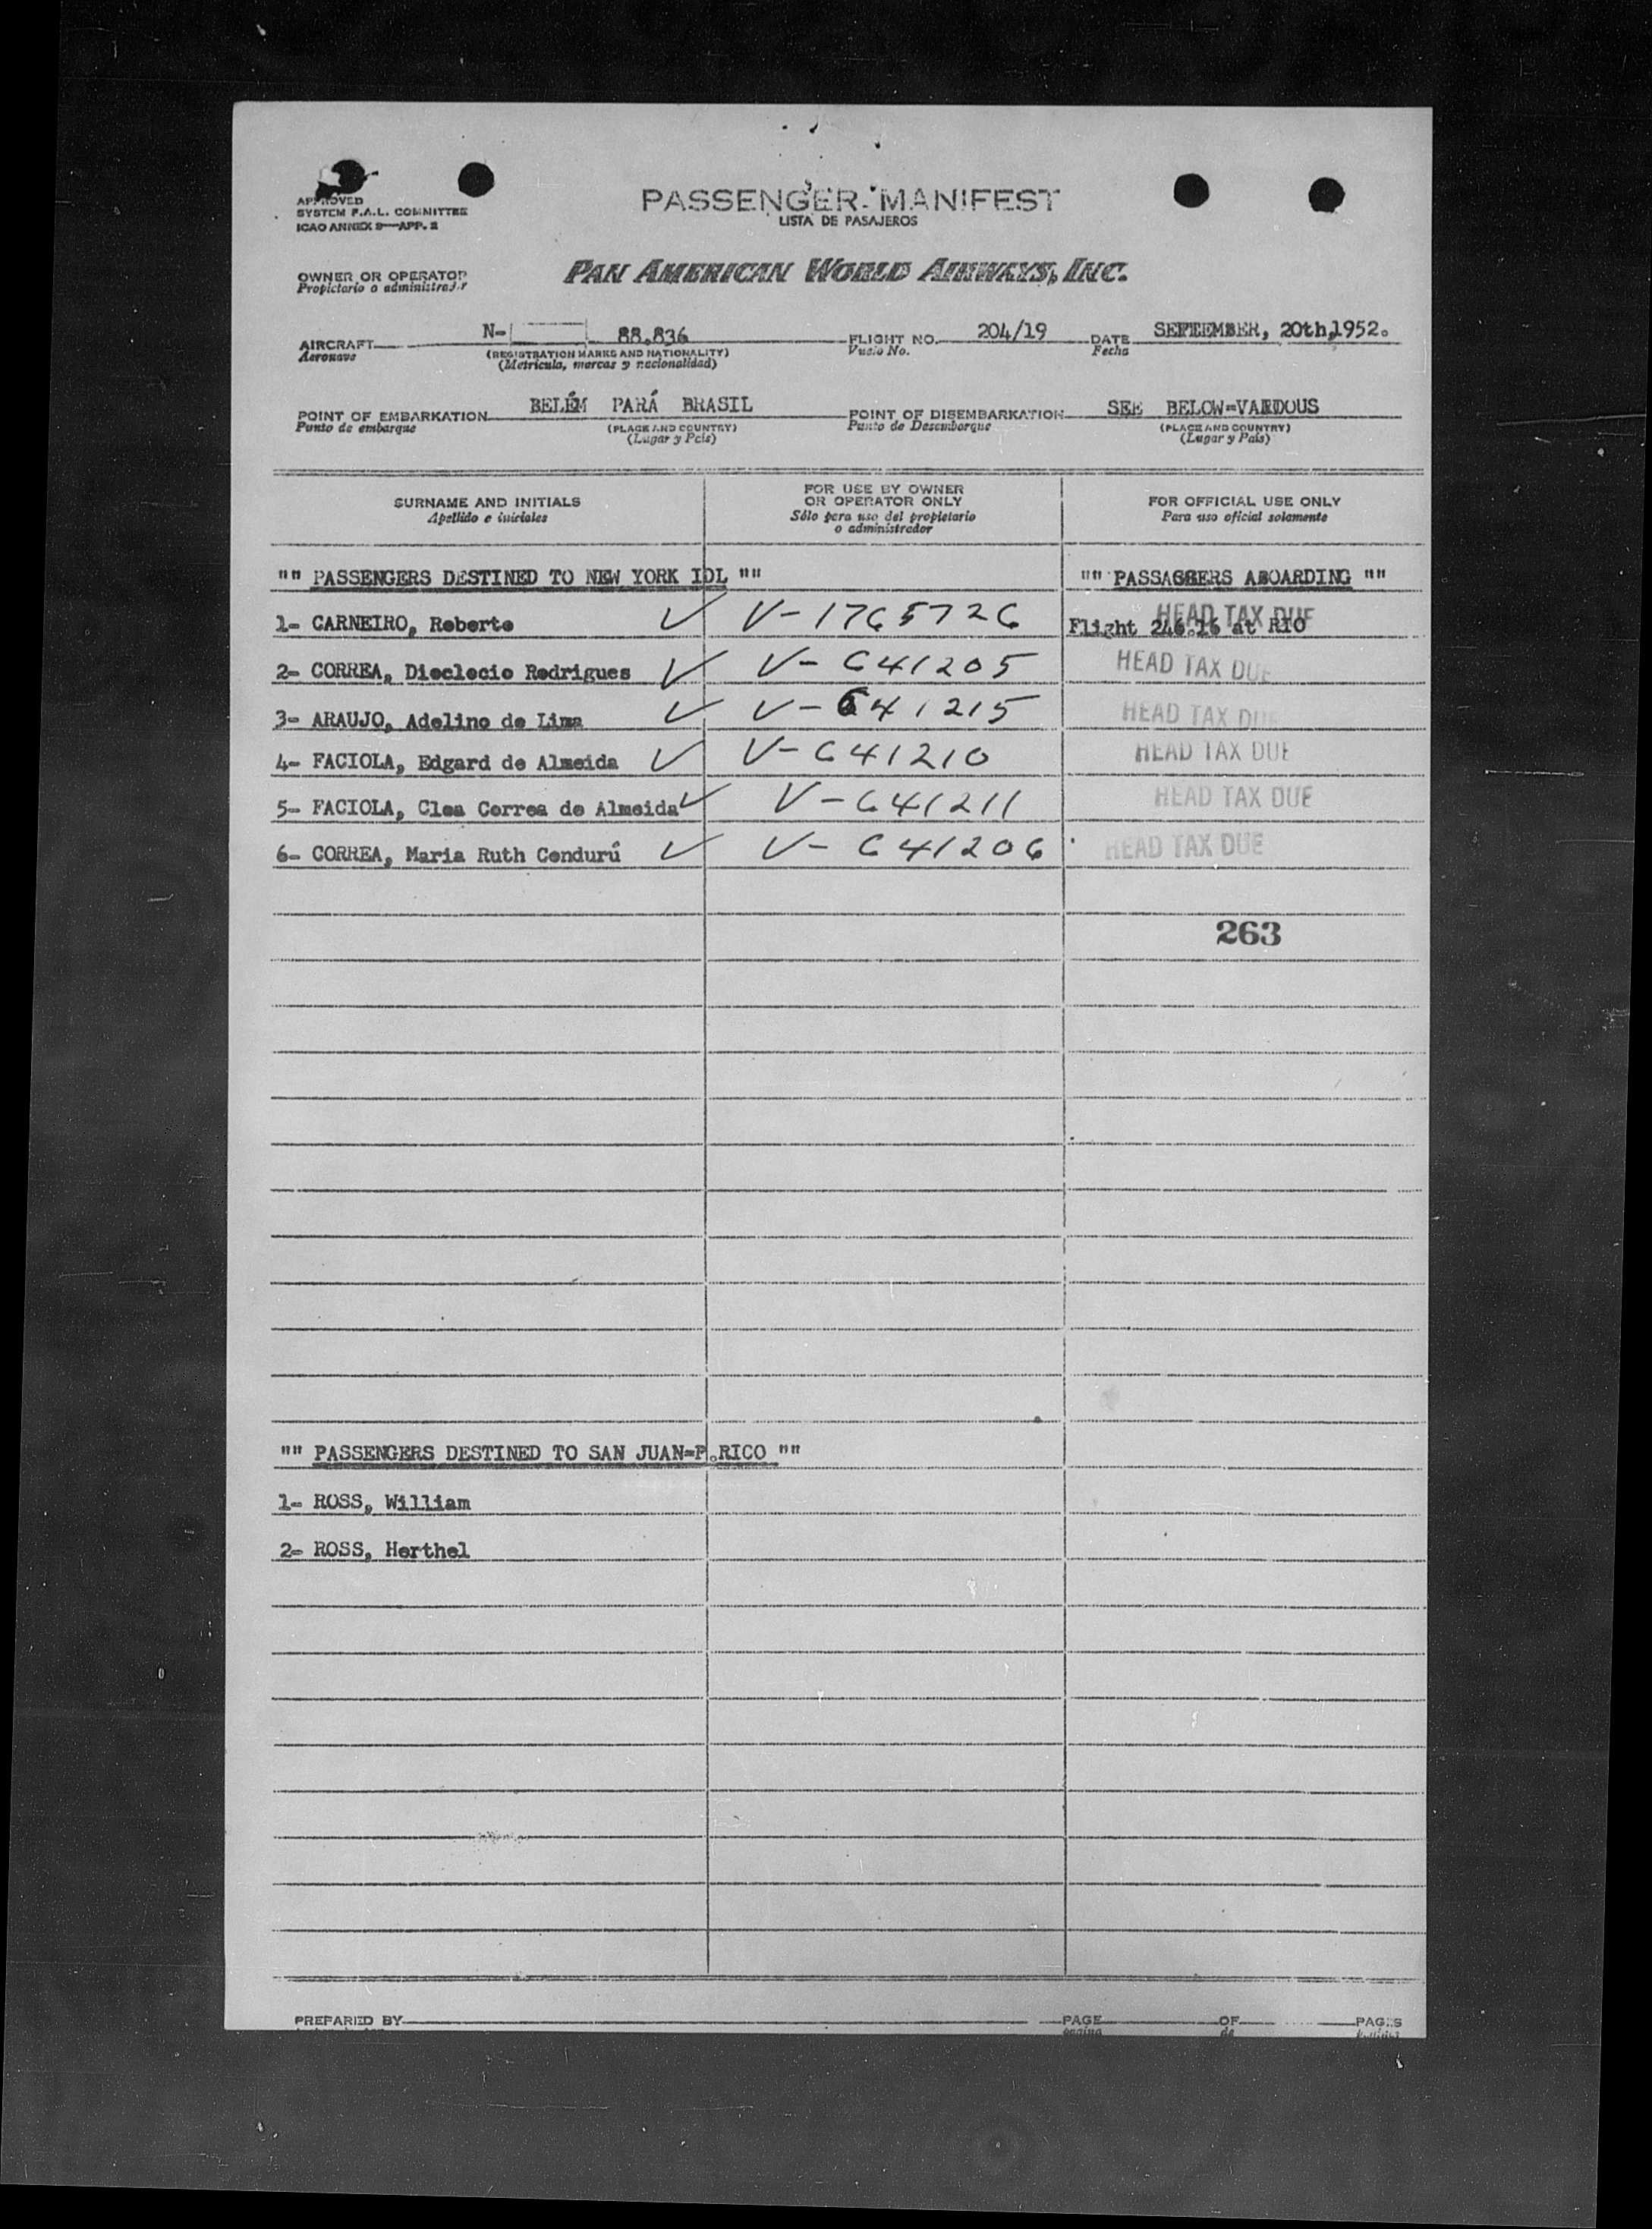 APPROVED
SYSTEM F.A.L. COMMITTEE
ICAO ANNEX 9—APP. 2
PASSENGER MANIFEST
LISTA DE PASAJEROS
OWNER OR OPERATOR
Propietario o administrador
PAN AMERICAN WORLD AIRWAYS, INC.
AIRCRAFT N- 88.836 FLIGHT NO. 204/19 DATE SEPTEMBER, 20th,1952.
Aeronave (REGISTRATION MARKS AND NATIONALITY) Vuelo No. Fecha
(Metrícula, marcas y nacionalidad)
POINT OF EMBARKATION BELÉM PARÁ BRASIL POINT OF DISEMBARKATION SEE BELOW=VARIOUS
Punto de embarque (PLACE AND COUNTRY) Punto de Desembarque (PLACE AND COUNTRY)
(Lugar y País) (Lugar y País)
SURNAME AND INITIALS
Apellido e iniciales
FOR USE BY OWNER
OR OPERATOR ONLY
Sólo para uso del propietario
o administrador
FOR OFFICIAL USE ONLY
Para uso oficial solamente
"" PASSENGERS DESTINED TO NEW YORK IDL "" "" PASSAGGERS ABOARDING ""
1- CARNEIRO, Roberto ✓ V-1765726 Flight 246.16 at RIO HEAD TAX DUE
2- CORREA, Dioclecio Rodrigues ✓ V-641205 HEAD TAX DUE
3- ARAUJO, Adelino de Lima ✓ V-641215 HEAD TAX DUE
4- FACIOLA, Edgard de Almeida ✓ V-641210 HEAD TAX DUE
5- FACIOLA, Clea Correa de Almeida ✓ V-641211 HEAD TAX DUE
6- CORREA, Maria Ruth Condurú ✓ V-641206 HEAD TAX DUE
263
"" PASSENGERS DESTINED TO SAN JUAN=P.RICO ""
1- ROSS, William
2- ROSS, Herthel
PREPARED BY PAGE OF PAGES